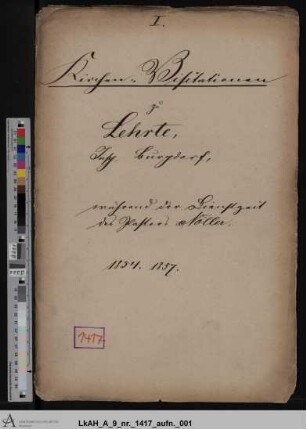 I.
Kirchen-Visitationen
zu
Lehrte,
Insp. Burgdorf,
während der Dienstzeit
des Pastors
1834. 1837.
1417
LkAH_A_9_nr._1417_aufn._001